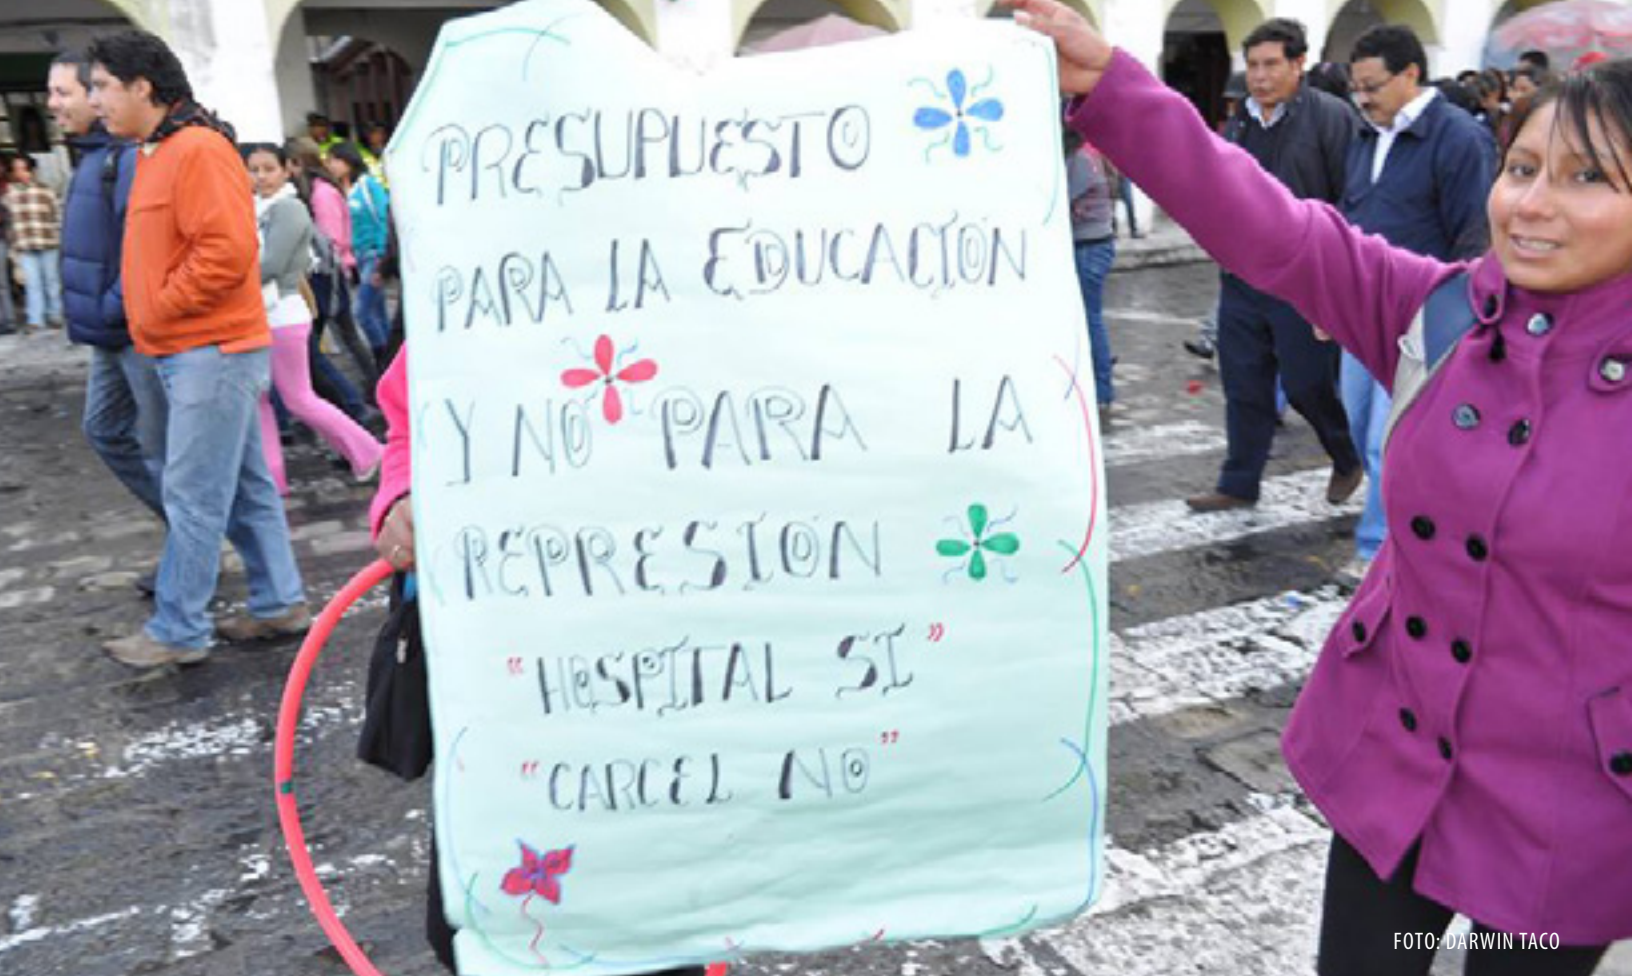 PRESUPUESTO
PARA LA EDUCACION
Y NO PARA LA
REPRESION
"HOSPITAL SI"
"CARCEL NO"
FOTO: DARWIN TACO